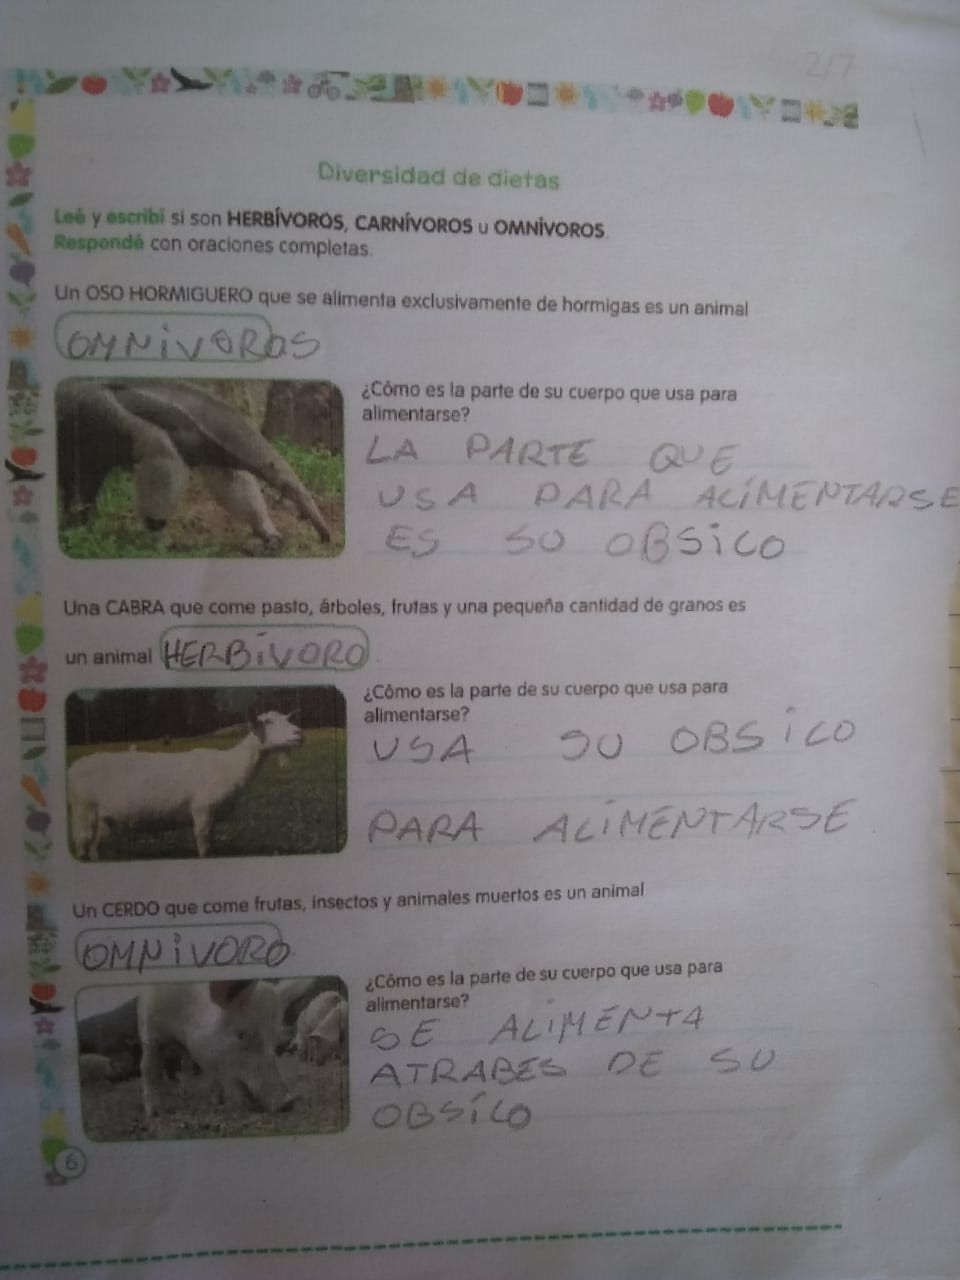 2/7
Diversidad de dietas
Leé y escribí si son HERBÍVOROS, CARNÍVOROS u OMNÍVOROS.
Respondé con oraciones completas.
Un OSO HORMIGUERO que se alimenta exclusivamente de hormigas es un animal
OMNiVOROS
¿Cómo es la parte de su cuerpo que usa para
alimentarse?
LA PARTE QUE
USA PARA ALÍMENTARSE
ES SU OBSiCO
Una CABRA que come pasto, árboles, frutas y una pequeña cantidad de granos es
un animal HERBÍVORO.
¿Cómo es la parte de su cuerpo que usa para
alimentarse?
USA SU OBSiCO
PARA ALiMENTARSE
Un CERDO que come frutas, insectos y animales muertos es un animal
OMNiVORO
¿Cómo es la parte de su cuerpo que usa para
alimentarse?
SE ALiMENTA
ATRABES DE SU
OBSÍCO
6